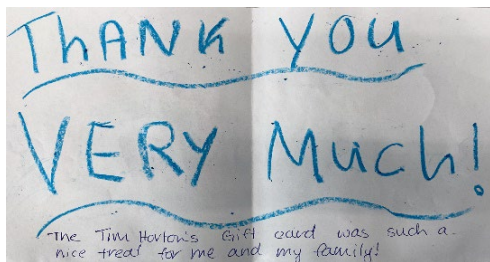 ThANK YOU
VERY Much!
The Tim Horton's Gift card was such a
nice treat for me and my family!